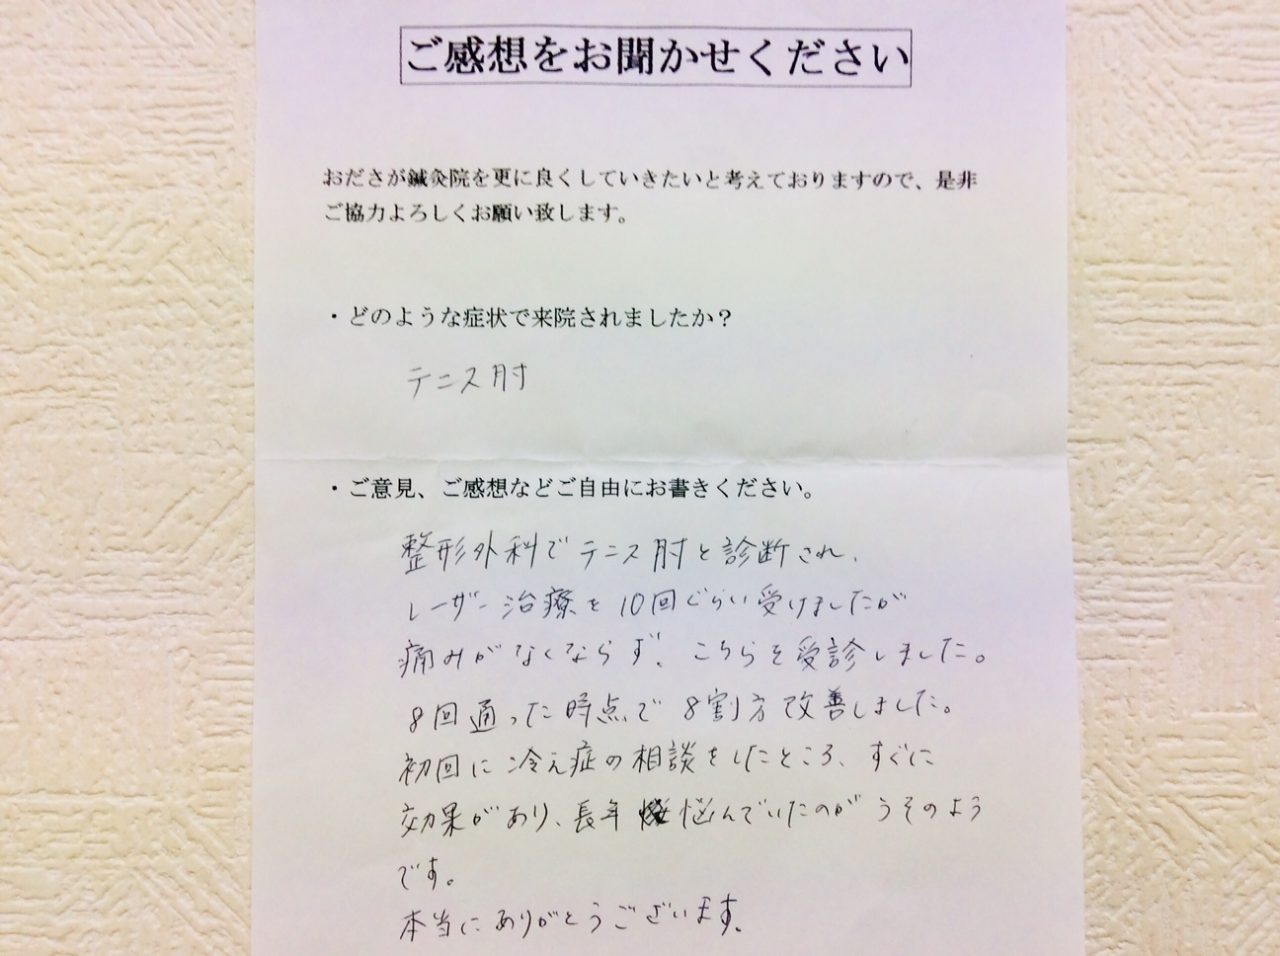 ご感想をお聞かせください
おださが鍼灸院を更に良くしていきたいと考えておりますので、是非
ご協力よろしくお願い致します。
・どのような症状で来院されましたか？
テニス肘
・ご意見、ご感想などご自由にお書きください。
整形外科でテニス肘と診断され、
レーザー治療を10回ぐらい受けましたが
痛みがなくならず、こちらを受診しました。
8回通った時点で8割方改善しました。
初回に冷え症の相談をしたところ、すぐに
効果があり、長年悩んでいたのがうそのよう
です。
本当にありがとうございます。